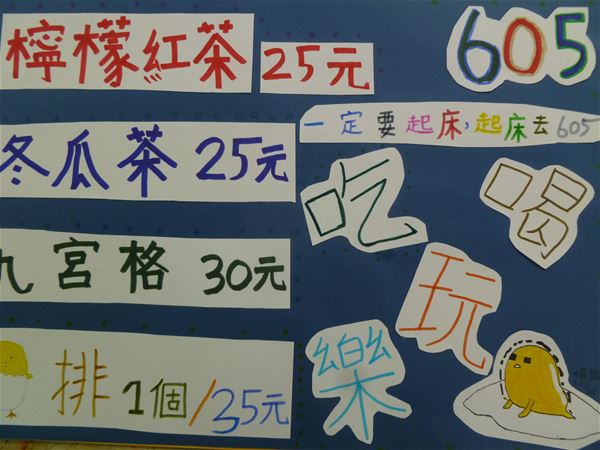 檸檬紅茶 25元
冬瓜茶 25元
九宮格 30元
排 1個/35元
605
一定要起床,起床去605
吃
喝
玩
樂